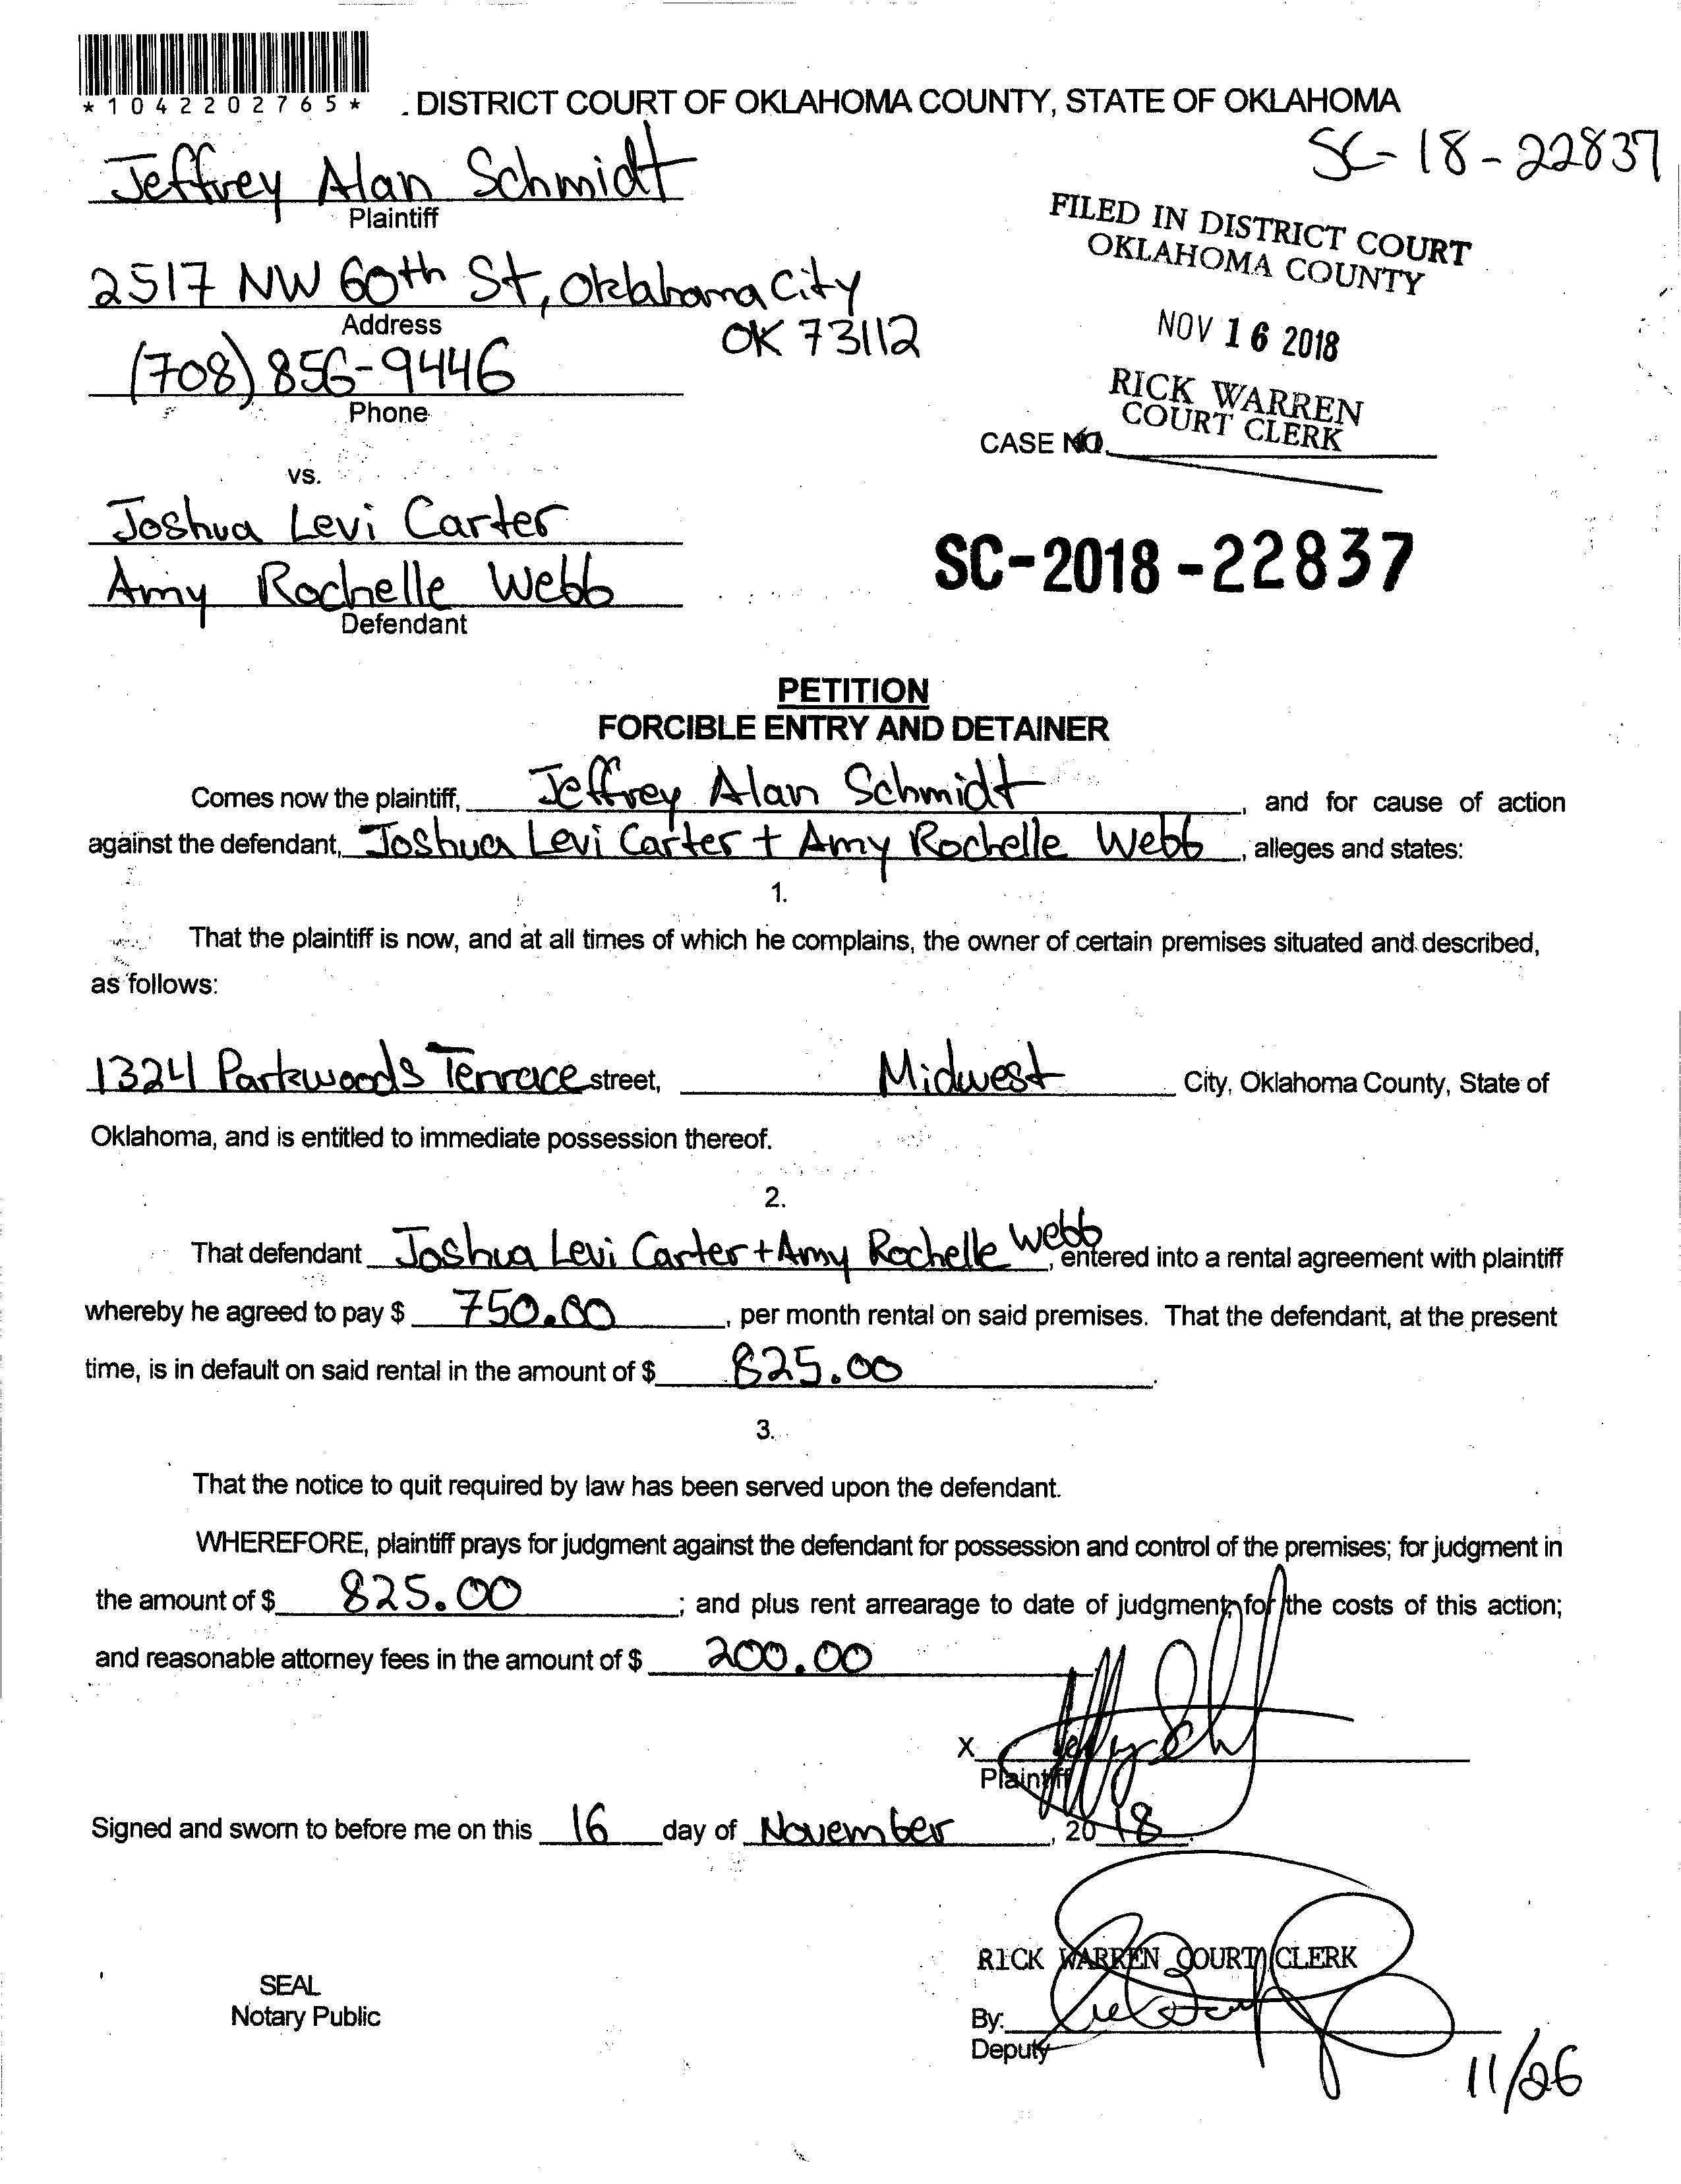 *1042202765*
DISTRICT COURT OF OKLAHOMA COUNTY, STATE OF OKLAHOMA
SC-18-22837
Jeffrey Alan Schmidt
Plaintiff
FILED IN DISTRICT COURT
OKLAHOMA COUNTY
2517 NW 60th St, Oklahoma City
OK 73112
Address
NOV 16 2018
(708) 856-9446
Phone
RICK WARREN
COURT CLERK
CASE NO.
vs.
Joshua Levi Carter
Amy Rochelle Webb
Defendant
SC-2018-22837
PETITION
FORCIBLE ENTRY AND DETAINER
Comes now the plaintiff, Jeffrey Alan Schmidt, and for cause of action
against the defendant, Joshua Levi Carter + Amy Rochelle Webb, alleges and states:
1.
That the plaintiff is now, and at all times of which he complains, the owner of certain premises situated and described,
as follows:
1324 Parkwoods Terrace street, Midwest City, Oklahoma County, State of
Oklahoma, and is entitled to immediate possession thereof.
2.
That defendant Joshua Levi Carter + Amy Rochelle Webb, entered into a rental agreement with plaintiff
whereby he agreed to pay $ 750.00, per month rental on said premises. That the defendant, at the present
time, is in default on said rental in the amount of $ 825.00.
3.
That the notice to quit required by law has been served upon the defendant.
WHEREFORE, plaintiff prays for judgment against the defendant for possession and control of the premises; for judgment in
the amount of $ 825.00; and plus rent arrearage to date of judgment; for the costs of this action;
and reasonable attorney fees in the amount of $ 200.00
X
Plaintiff
Signed and sworn to before me on this 16 day of November, 2018.
RICK WARREN COURT CLERK
SEAL
Notary Public
By:
Deputy
11/26